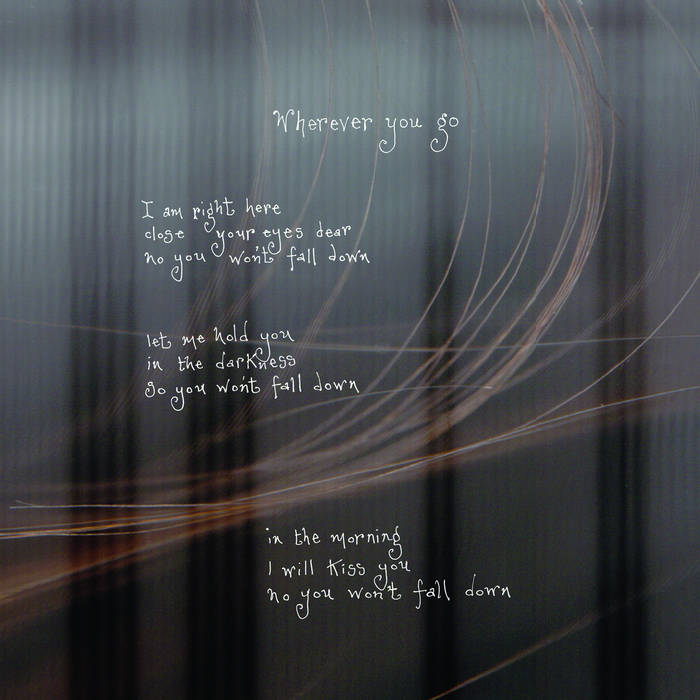 Wherever you go
I am right here
close your eyes dear
no you won't fall down
let me hold you
in the darkness
so you won't fall down
in the morning
I will kiss you
no you won't fall down